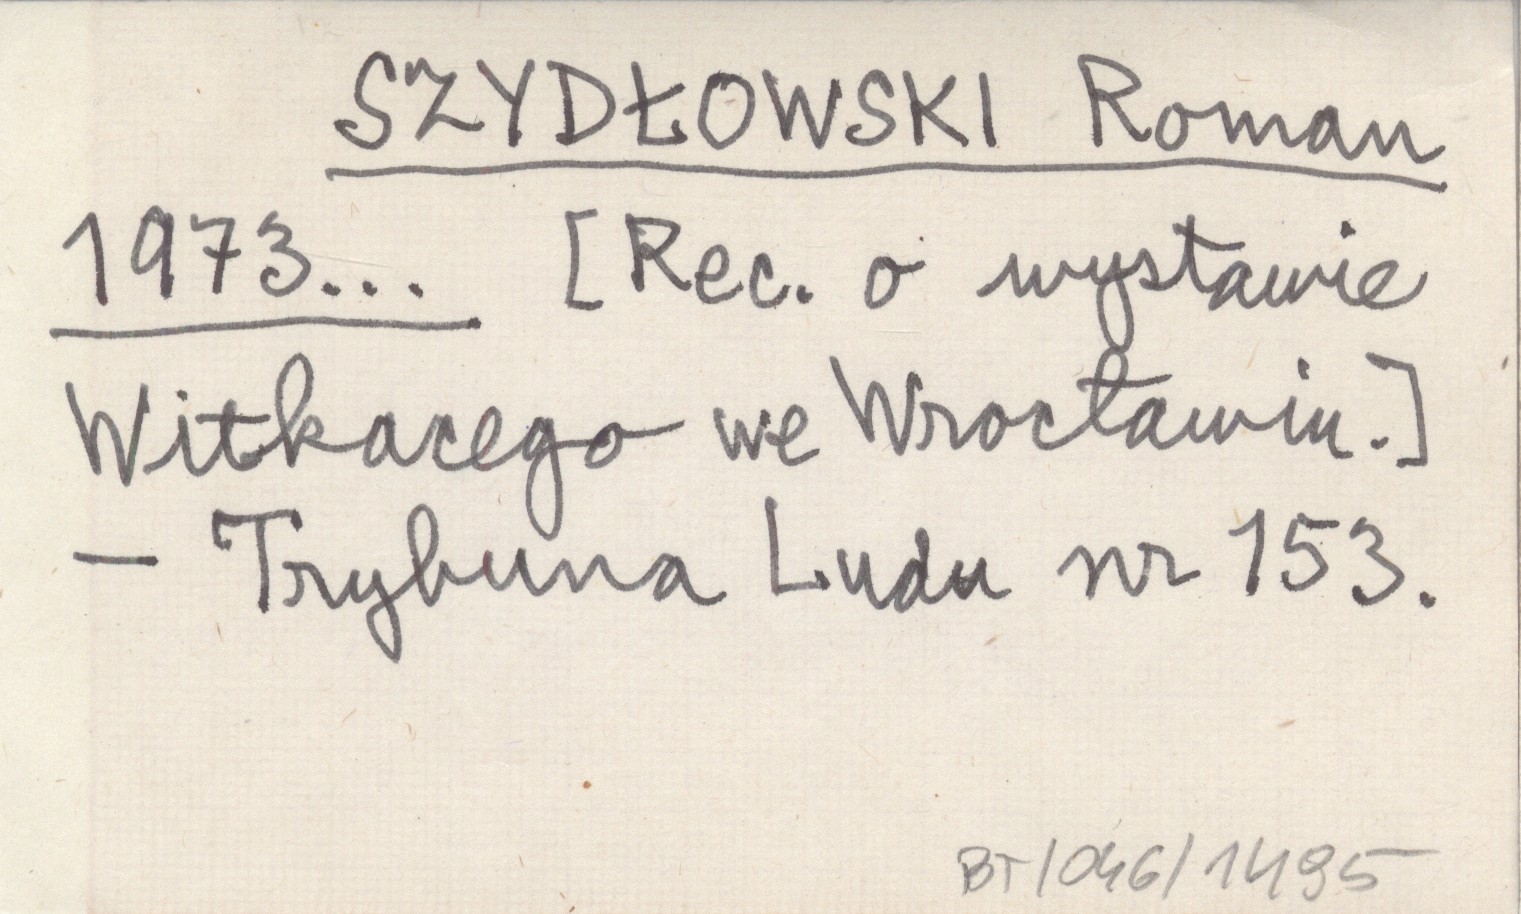 SZYDŁOWSKI Roman
1973... [Rec. o wystawie
Witkacego we Wrocławiu.]
— Trybuna Ludu nr 153.
BT/046/1495